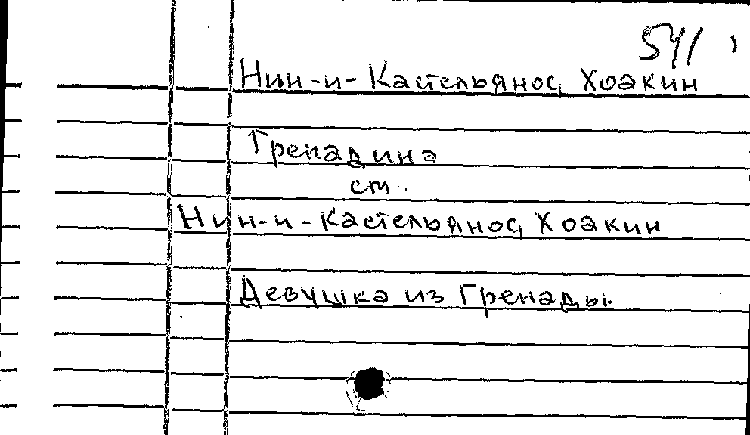 541
Нин-и-Кастельянос, Хоакин
Гренадина
см.
Нин-и-Кастельянос, Хоакин
Девушка из Гренады.